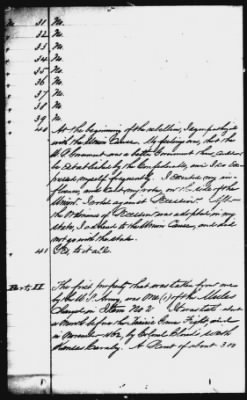 " 31 No.
" 32 No
" 33 No
" 34 No
" 35 No
" 36 No
" 37 No
" 38 No
" 39 No
" 40 At the beginning of the rebellion, I sympathized
with the Union Cause. My feelings were, that the
U S Government was a better Government than could
be Established by the Confederates, and I so Ex-
pressed myself frequently. I exerted my in-
fluence, and cast my vote, on the side of the
Union. I voted against Secession. After
the Ordinance of Secession was adopted in my
state, I adhered to the Union Cause, and did
not go with the state.
" 41 Yes, to it all.
Part II The first property that was taken from me
by the U S Army, was One (1) of the Mules
Charged in Item No 2. It was taken about
a month before the Prairie Grove Fight, in
in November 1862, by Colonel 's
Kansas Cavalry. A Scout of about 300